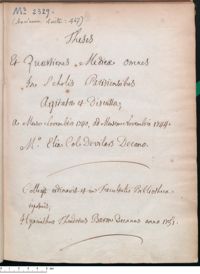 Ms 2329.
(Ancienne Cote: 467)
Theses
Et Quæstiones Medicæ omnes
In Scholis Parisiensibus
Agitatæ et Discussæ,
a Mense Novembri 1742, ad Mensem Novembris 1744.
M.° Elia Col-Devilars Decano.
Collegit ordinavit et in Facultatis Bibliotheca
reposuit,
Hyacinthus Theodorus Baron Decanus anno 1751.